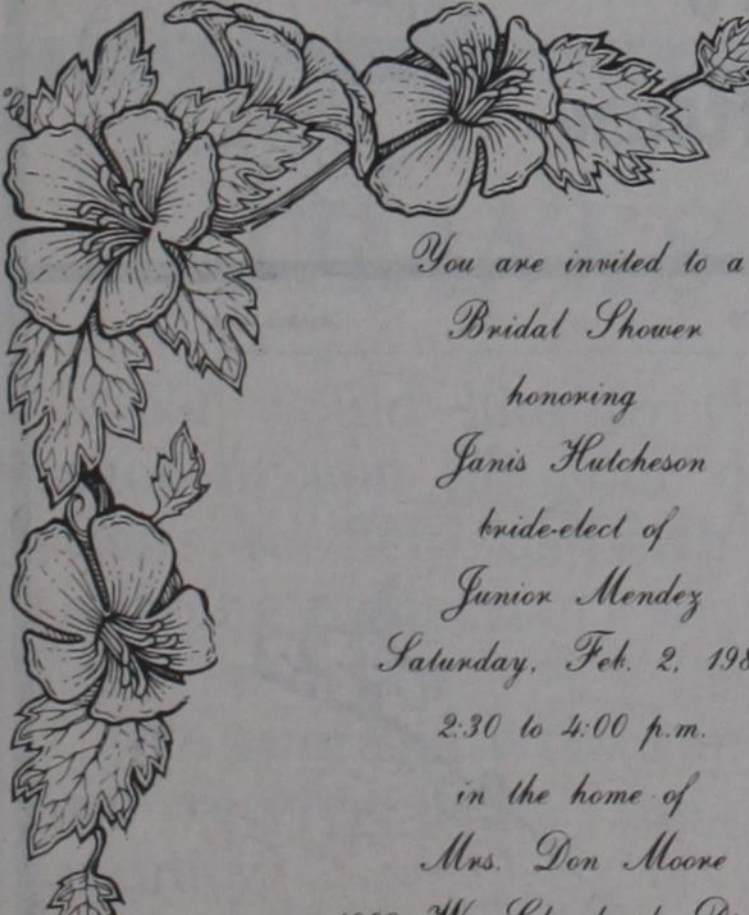 You are invited to a
Bridal Shower
honoring
Janis Hutcheson
bride-elect of
Junior Mendez
Saturday, Feb. 2, 198
2:30 to 4:00 p.m.
in the home of
Mrs. Don Moore
W.